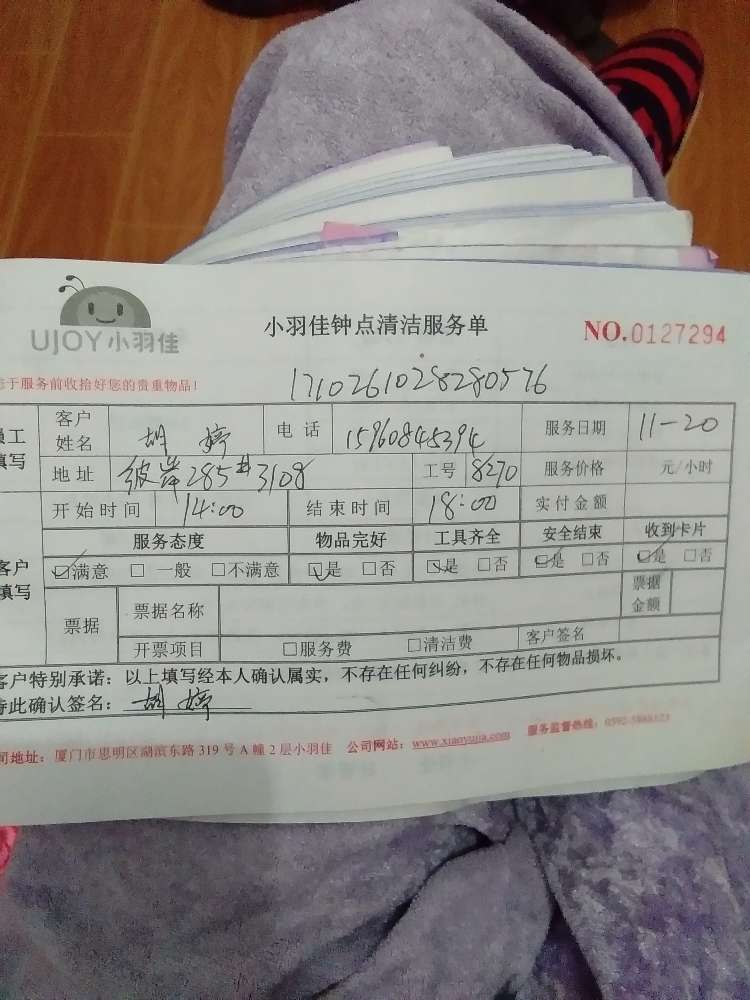 UJOY小羽佳
小羽佳钟点清洁服务单
NO.0127294
于服务前收拾好您的贵重物品!
1710261028280576
员工填写
客户姓名 胡婷 电话 15960845394 服务日期 11-20
地址 彼岸285#3108 工号 8270 服务价格 元/小时
开始时间 14:00 结束时间 18:00 实付金额
客户填写
服务态度 物品完好 工具齐全 安全结束 收到卡片
☑满意 □一般 □不满意 ☑是 □否 ☑是 □否 ☑是 □否 ☑是 □否
票据 票据名称 票据金额
开票项目 □服务费 □清洁费 客户签名
客户特别承诺:以上填写经本人确认属实,不存在任何纠纷,不存在任何物品损坏。
特此确认签名:胡婷
司地址:厦门市思明区湖滨东路319号A幢2层小羽佳 公司网站:www.xiaoyujia.com 服务监督热线: